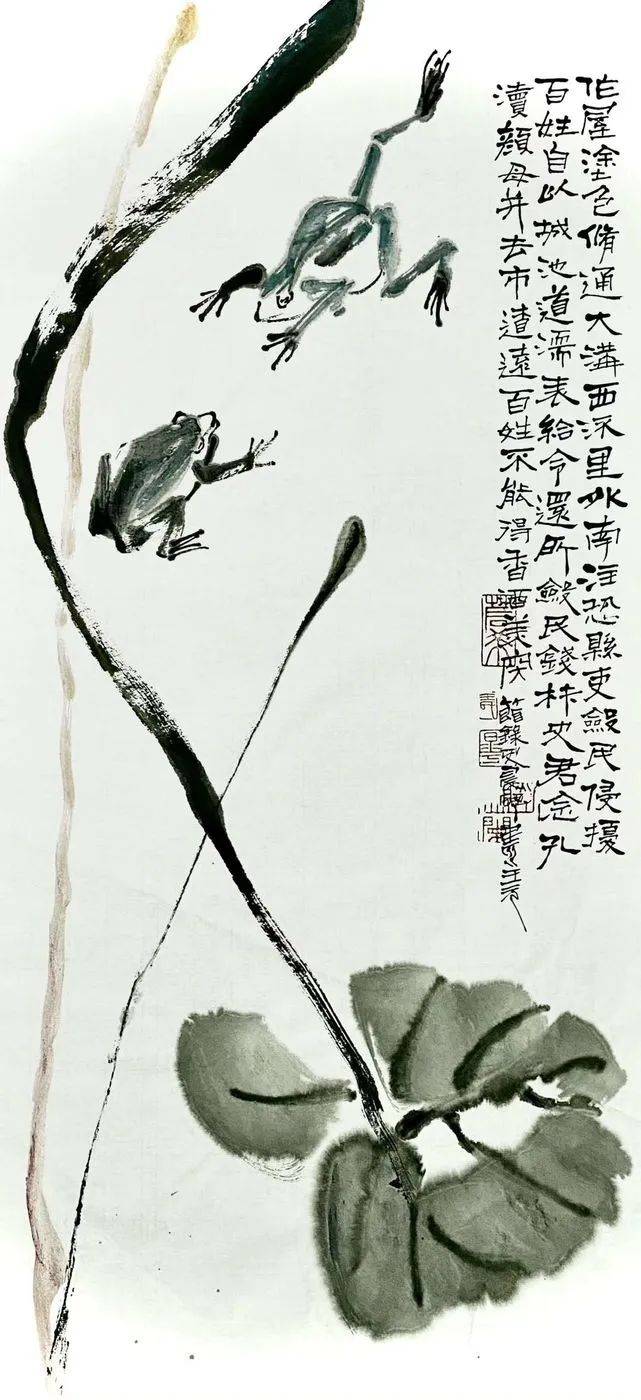 作屋塗色脩通大溝西流里外南注恐縣吏斂民侵擾
百姓自以城池道濡表給令還所斂民錢林史君念孔
瀆顏母井去市遼遠百姓不能得香酒美肉
節錄史晨碑